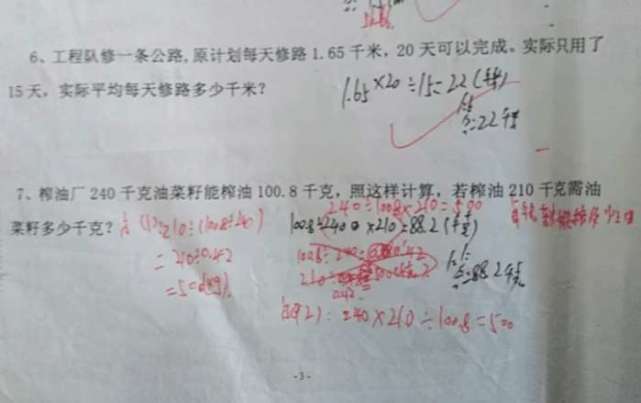 6、工程队修一条公路,原计划每天修路1.65千米,20天可以完成。实际只用了
15天,实际平均每天修路多少千米?
1.65×20÷15=22(千米)
答:22千米
7、榨油厂240千克油菜籽能榨油100.8千克,照这样计算,若榨油210千克需油
菜籽多少千克?
240÷100.8×210=500
210÷(100.8÷240)
100.8÷240×210=88.2(千克)
=210÷0.42
100.8÷240=0.42
=500(kg)
:240×210÷100.8=500
-3-